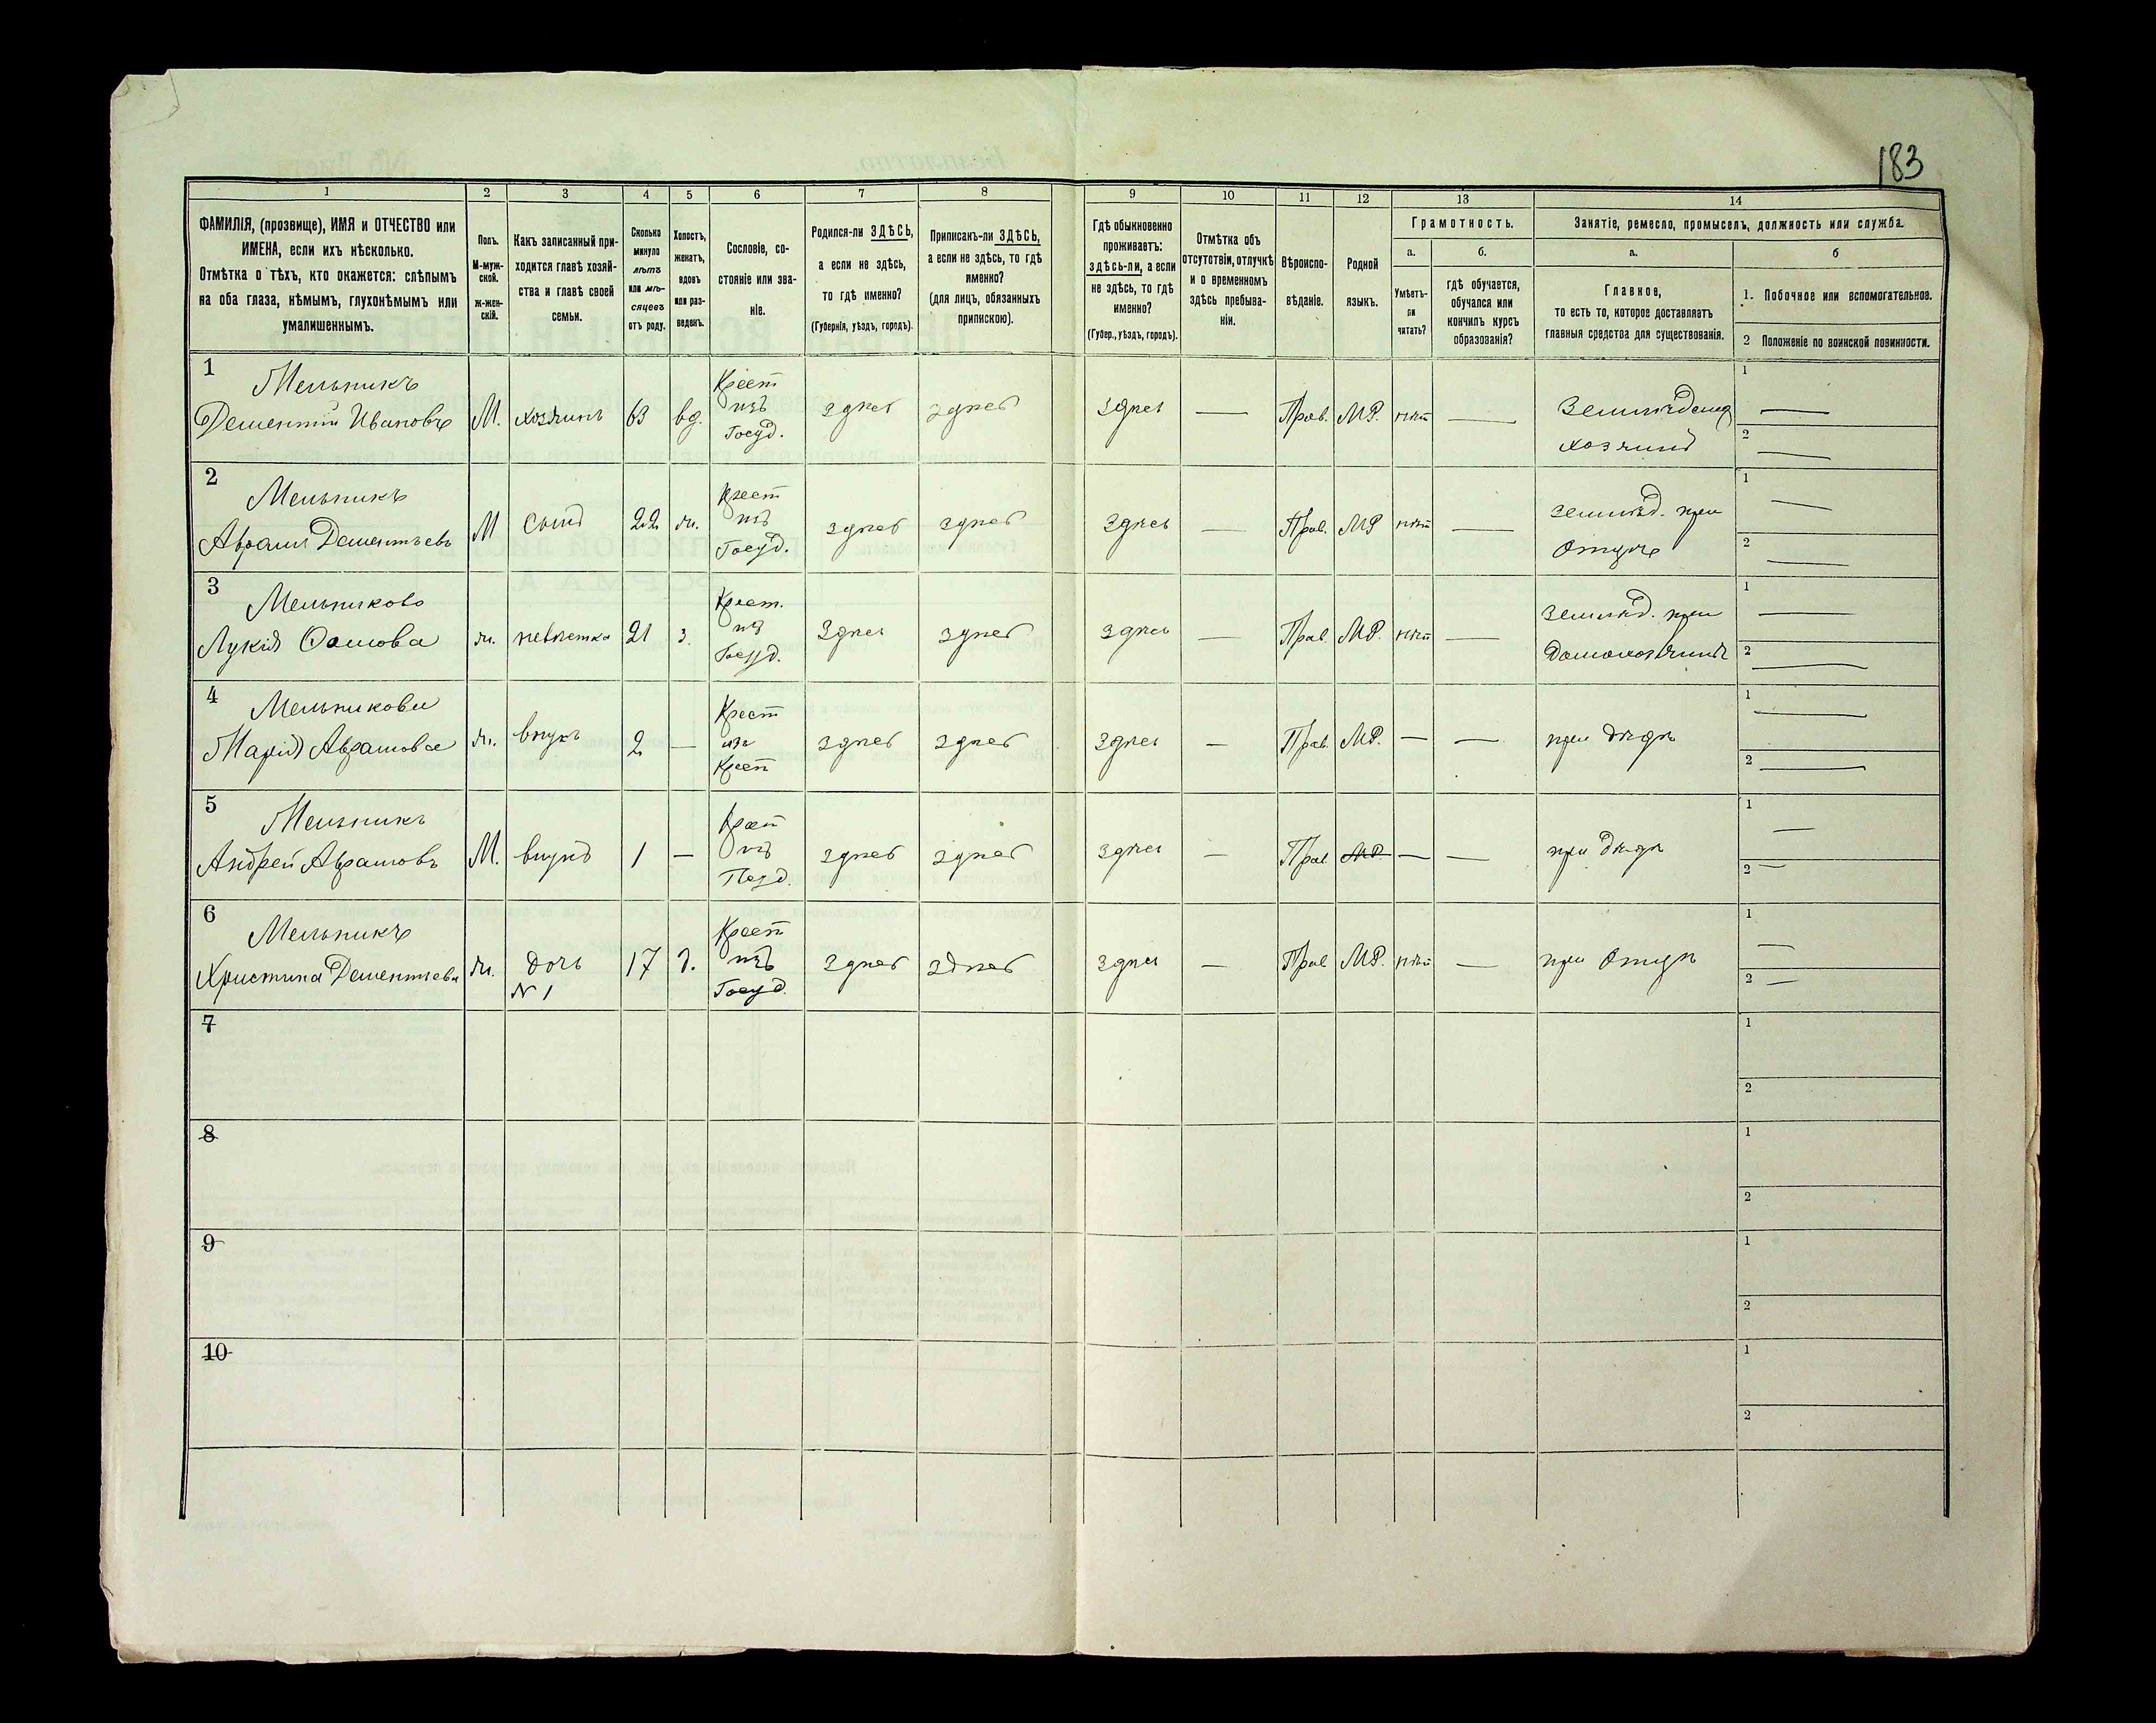 183
1
2
3
4
5
6
7
8
9
10
11
12
13
14
ФАМИЛІЯ, (прозвище), ИМЯ и ОТЧЕСТВО или
ИМЕНА, если ихъ нѣсколько.
Отмѣтка о тѣхъ, кто окажется: слѣпымъ
на оба глаза, нѣмымъ, глухонѣмымъ или
умалишеннымъ.
Полъ.
М-муж-
ской.
ж-жен-
скій.
Какъ записанный при-
ходится главѣ хозяй-
ства и главѣ своей
семьи.
Сколько
минуло
лѣтъ
или мѣ-
сяцевъ
отъ роду.
Холостъ,
женатъ,
вдовъ
или раз-
веденъ.
Сословіе, со-
стояніе или зва-
ніе.
Родился-ли ЗДѢСЬ,
а если не здѣсь,
то гдѣ именно?
(Губернія, уѣздъ, городъ).
Приписанъ-ли ЗДѢСЬ,
а если не здѣсь, то гдѣ
именно?
(для лицъ, обязанныхъ
припискою).
Гдѣ обыкновенно
проживаетъ:
здѣсь-ли, а если
не здѣсь, то гдѣ
именно?
(Губер., уѣздъ, городъ).
Отмѣтка объ
отсутствіи, отлучкѣ
и о временномъ
здѣсь пребыва-
ніи.
Вѣроиспо-
вѣданіе.
Родной
языкъ.
Грамотность.
а.
Умѣетъ-
ли
читать?
б.
гдѣ обучается,
обучался или
кончилъ курсъ
образованія?
Занятіе, ремесло, промыселъ, должность или служба.
а.
Главное,
то есть то, которое доставляетъ
главныя средства для существованія.
б
1. Побочное или вспомогательное.
2 Положеніе по воинской повинности.
1
Мельникъ
Дементій Ивановъ
М.
хозяинъ
63
вд.
Крест
изъ
Госуд.
здѣсь
здѣсь
здѣсь
—
Прав.
МР.
нѣт
—
Земледелец
хозяинъ
1 —
2 —
2
Мельникъ
Аврам Дементьевъ
М
сынъ
22
ж.
Крест
изъ
Госуд.
здѣсь
здѣсь
здѣсь
—
Прав.
МР
нѣт
—
земледд. при
Отцѣ
1 —
2 —
3
Мельникова
Лукія
ж.
невѣстка
21
з.
Крест.
изъ
Госуд.
здѣсь
здѣсь
здѣсь
—
Прав.
МР.
нѣт
—
землед. при
Домохозяинѣ
1 —
2 —
4
Мельникова
Марія Аврамова
ж.
внукъ
2
—
Крест
изъ
Крест
здѣсь
здѣсь
здѣсь
—
Прав.
МР.
—
—
при дѣдѣ
1 —
2 —
5
Мельникъ
Андрей Аврамовъ
М.
внукъ
1
—
Крест
изъ
здѣсь
здѣсь
здѣсь
—
Прав
МР.
—
—
при дѣдѣ
1 —
2 —
6
Мельникъ
Христина Дементьева
ж.
дочь
N 1
17
д.
Крест
изъ
Госуд.
здѣсь
здѣсь
здѣсь
—
Прав
МР.
нѣт
—
при Отцѣ
1 —
2 —
7
1
2
8
1
2
9
1
2
10
1
2